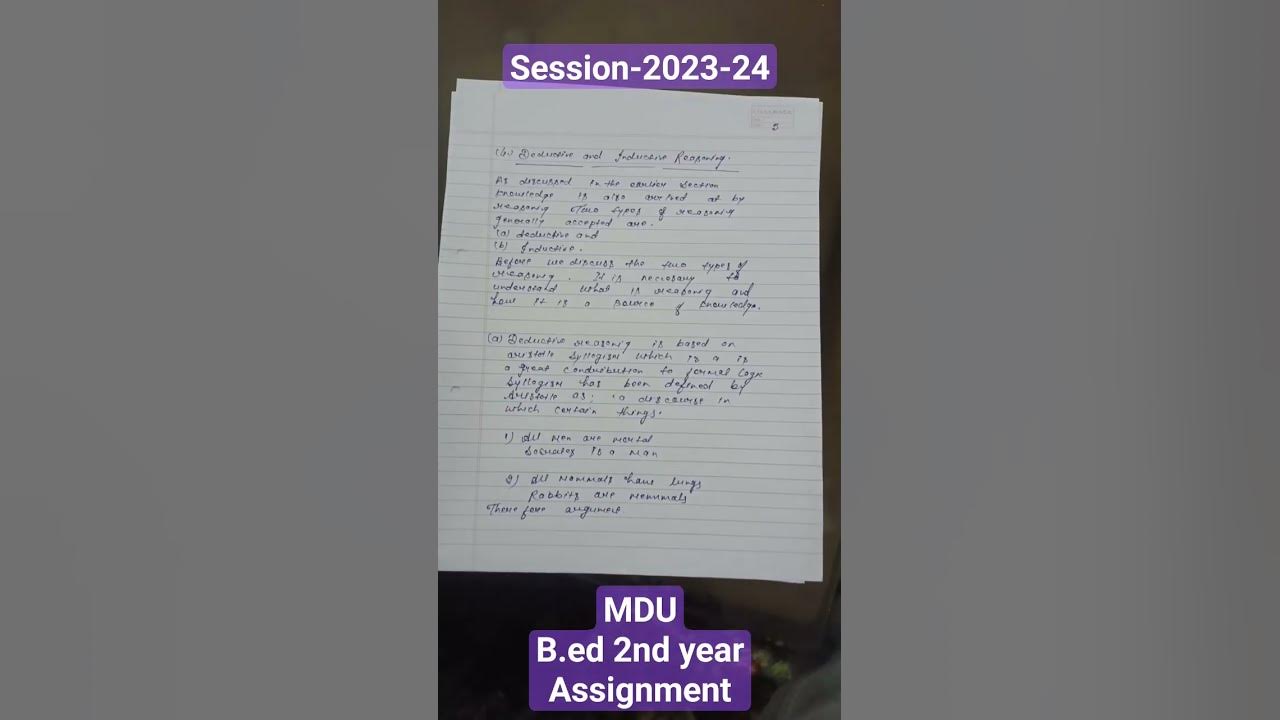 Session-2023-24
5
Deductive and Inductive Reasoning.
As discussed in the earlier section
knowledge is also arrived at by
reasoning Two types of reasoning
generally accepted are.
(a) deductive and
(b) Inductive.
Before we discuss the two types of
reasoning. It is necessary to
understand what is reasoning and
how it is a source of knowledge.
(a) Deductive reasoning is based on
aristotle Syllogism which is a is
a great contribution to formal logic
Syllogism has been defined by
Aristotle as; a discourse in
which certain things.
1) All men are mortal
Socrates is a man
2) All mammals have lungs
Rabbits are mammals
Therefore argument
MDU
B.ed 2nd year
Assignment